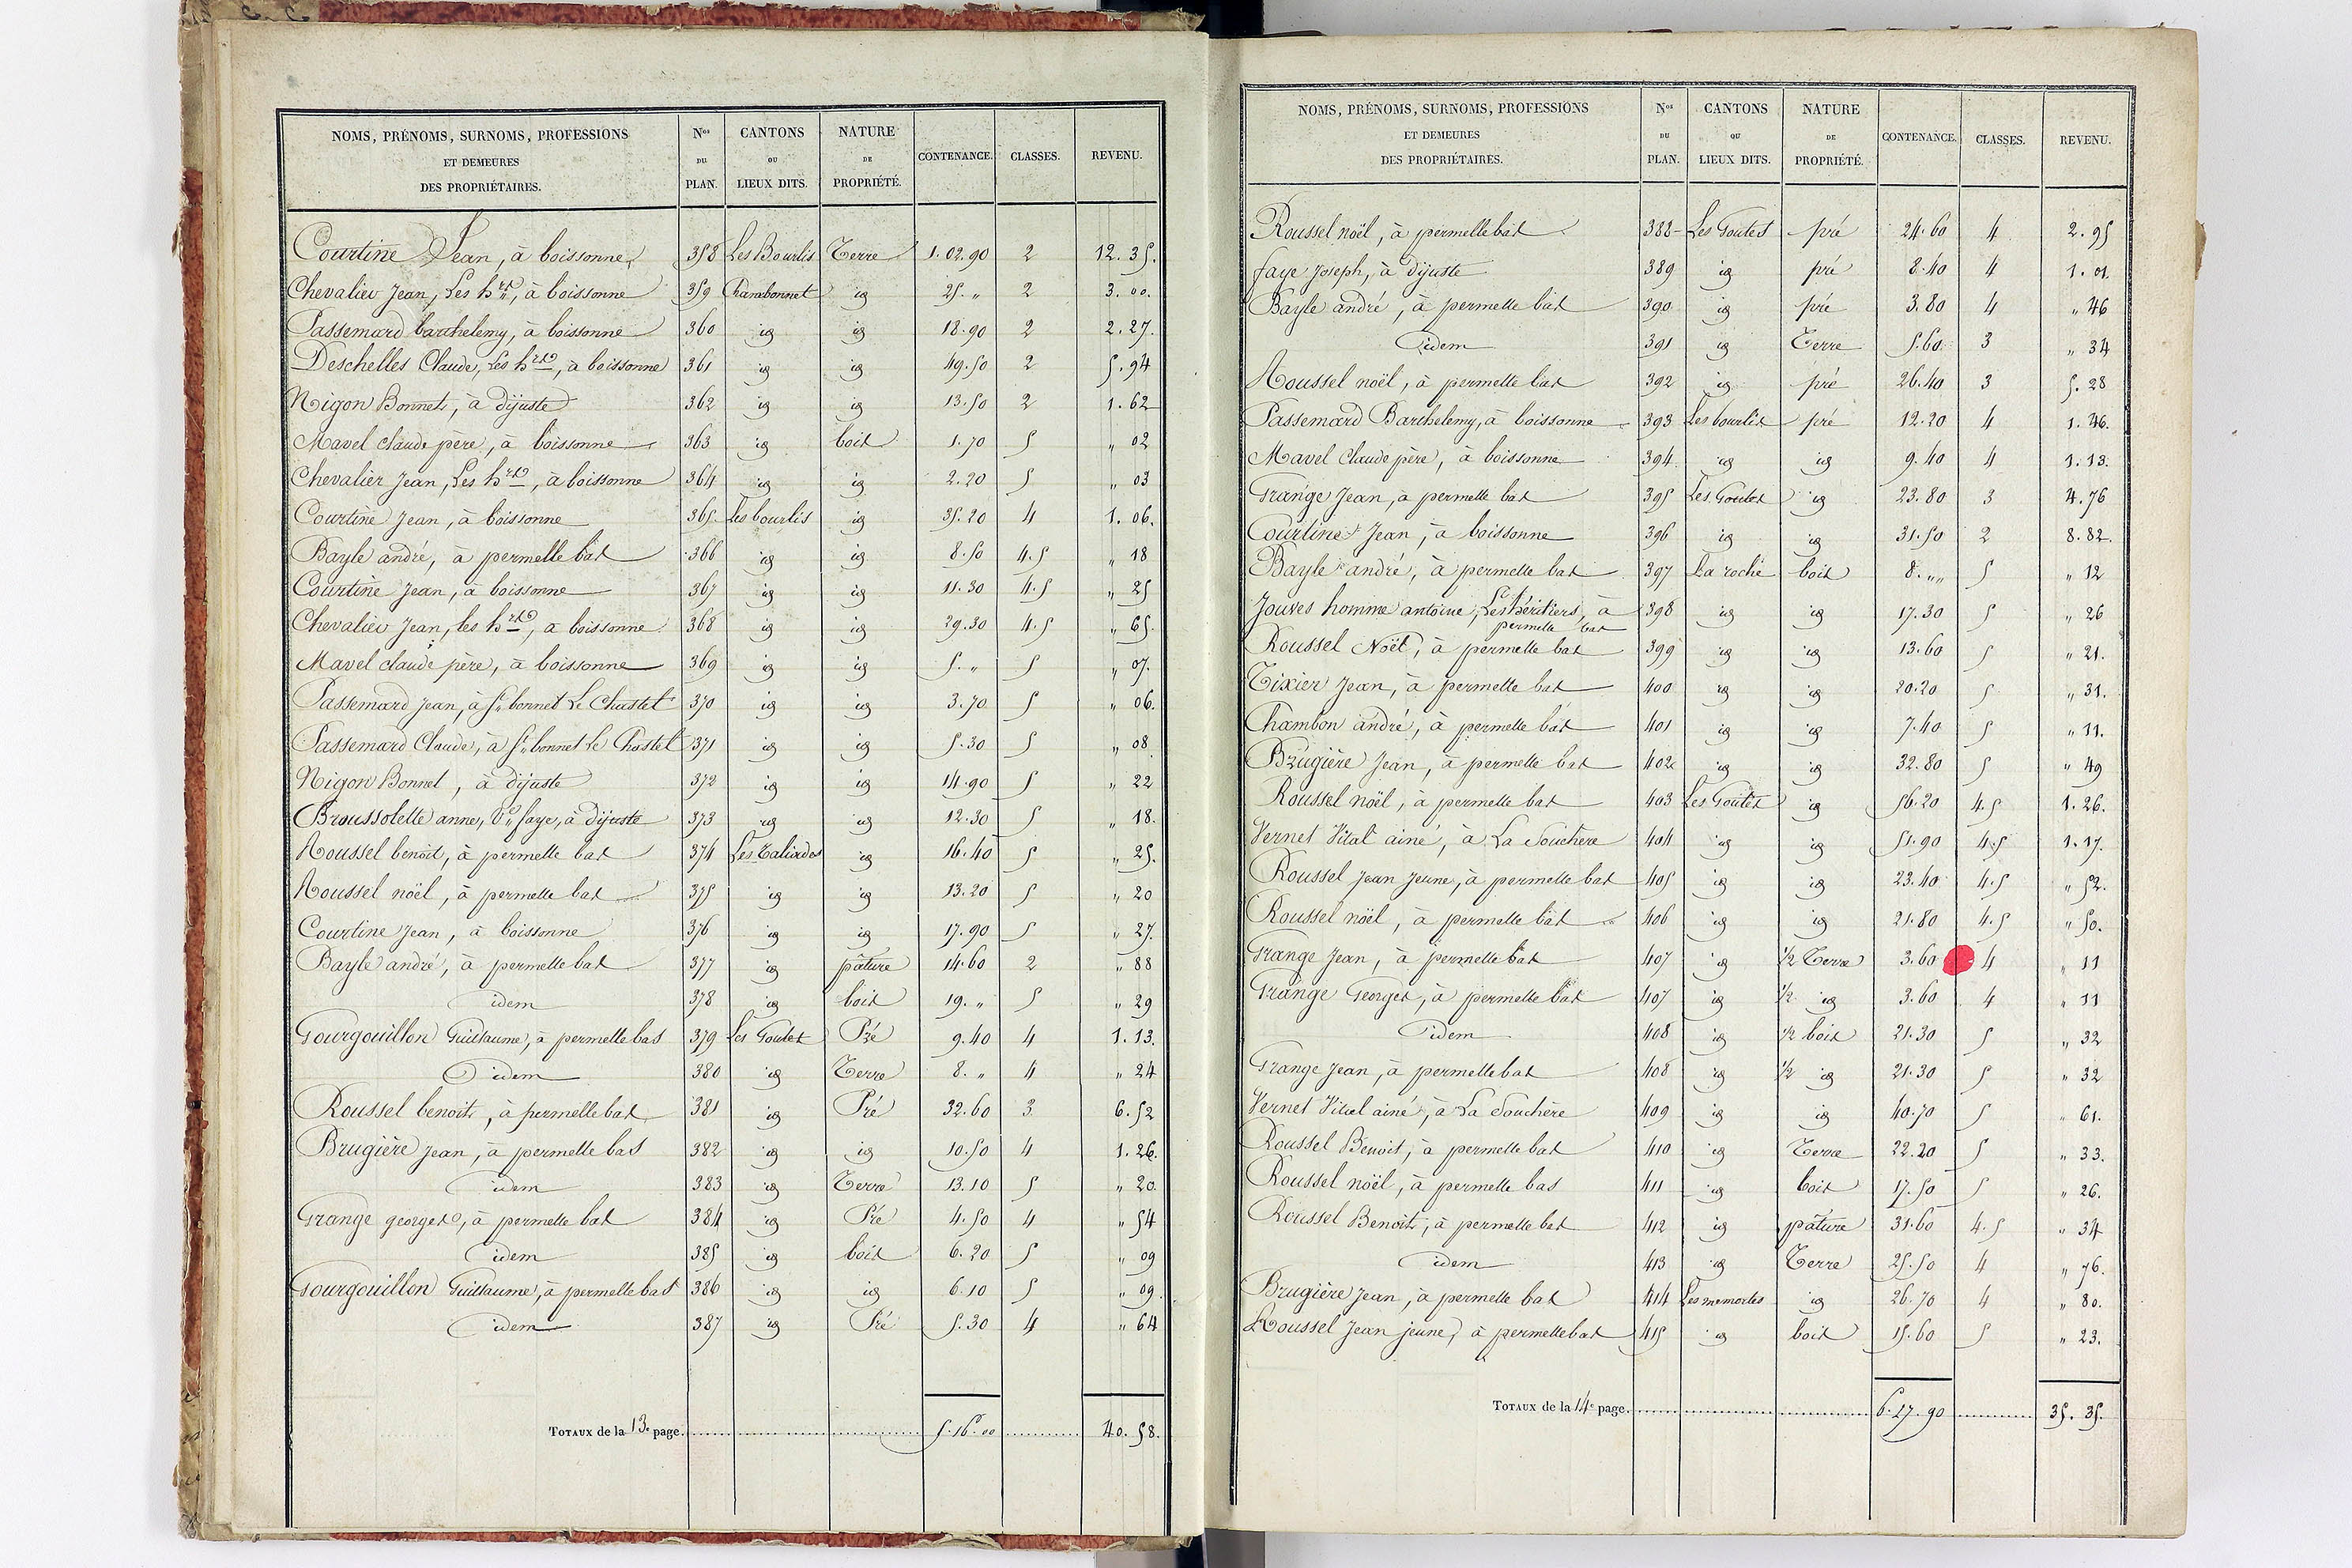 NOMS, PRÉNOMS, SURNOMS, PROFESSIONS ET DEMEURES DES PROPRIÉTAIRES. Nos DU PLAN. CANTONS OU LIEUX DITS. NATURE DE PROPRIÉTÉ. CONTENANCE. CLASSES. REVENU.
Courtine Jean, à boissonne 358 Les Bourlis Terre 1.02.90 2 12.35.
Chevalier Jean, Les hrs, à boissonne 359 Chambonnet id 25. „ 2 3.00.
Passemard barthelemy, à boissonne 360 id id 18.90 2 2.27.
Deschelles Claude, Les hrs, à boissonne 361 id id 49.50 2 5.94
Nigon Bonnet, à dijuste 362 id id 13.50 2 1.62
Mavel claude père, à boissonne 363 id bois 1.70 5 „ 02
Chevalier Jean, Les hrs, à boissonne 364 id id 2.20 5 „ 03
Courtine Jean, à boissonne 365. Les bourlis id 35.20 4 1.06.
Bayle andré, à permelle bas 366 id id 8.50 4.5 „ 18
Courtine Jean, à boissonne 367 id id 11.30 4.5 „ 25
Chevalier Jean, les hrs, à boissonne 368 id id 29.30 4.5 „ 65.
Mavel claude père, à boissonne 369 id id 5. „ 5 „ 07.
Passemard Jean, à St bonnet Le Chastel 370 id id 3.70 5 „ 06.
Passemard Claude, à St bonnet le Chastel 371 id id 5.30 5 „ 08
Nigon Bonnet, à dijuste 372 id id 14.90 5 „ 22
Broussolette anne, Ve faye, à dijuste 373 id id 12.30 5 „ 18.
Roussel benoit, à permelle bas 374 Les Taliades id 16.40 5 „ 25.
Roussel noël, à permelle bas 375 id id 13.20 5 „ 20
Courtine Jean, à boissonne 376 id id 17.90 5 „ 27.
Bayle andré, à permelle bas 377 id pâture 14.60 2 „ 88
idem 378 id bois 19. „ 5 „ 29
Gourgouillon Guillaume, à permelle bas 379 Les Goutes Pré 9.40 4 1.13.
idem 380 id Terre 8. „ 4 „ 24
Roussel benoit, à permelle bas 381 id Pré 32.60 3 6.52
Brugière Jean, à permelle bas 382 id id 10.50 4 1.26.
idem 383 id Terre 13.10 5 „ 20.
Grange georges, à permelle bas 384 id Pré 4.50 4 „ 54
idem 385 id bois 6.20 5 „ 09
Gourgouillon Guillaume, à permelle bas 386 id id 6.10 5 „ 09.
idem 387 id Pré 5.30 4 „ 64
TOTAUX de la 13e page. 5.16.00 40.58.
NOMS, PRÉNOMS, SURNOMS, PROFESSIONS ET DEMEURES DES PROPRIÉTAIRES. Nos DU PLAN. CANTONS OU LIEUX DITS. NATURE DE PROPRIÉTÉ. CONTENANCE. CLASSES. REVENU.
Roussel noël, à permelle bas 388 Les Goutes pré 24.60 4 2.95
faye Joseph, à dijuste 389 id pré 8.40 4 1.01.
Bayle andré, à permelle bas 390 id pré 3.80 4 „ 46
idem 391 id Terre 5.60 3 „ 34
Roussel noël, à permelle bas 392 id pré 26.40 3 5.28
Passemard Barthelemy, à boissonne 393 Les bourlis pré 12.20 4 1.46.
Mavel Claude père, à boissonne 394 id id 9.40 4 1.13.
Grange Jean, à permelle bas 395 Les Goutes id 23.80 3 4.76
Courtine Jean, à boissonne 396 id id 31.50 2 8.82.
Bayle andré, à permelle bas 397 La roche bois 8. „„ 5 „ 12
Jouves homme antoine, Les héritiers, à permelle bas 398 id id 17.30 5 „ 26
Roussel Noël, à permelle bas 399 id id 13.60 5 „ 21.
Tixier Jean, à permelle bas 400 id id 20.20 5 „ 31.
Chambon andré, à permelle bas 401 id id 7.40 5 „ 11.
Brugière Jean, à permelle bas 402 id id 32.80 5 „ 49
Roussel noël, à permelle bas 403 Les Goutes id 56.20 4.5 1.26.
Vernet Vital ainé, à La Souchère 404 id id 51.90 4.5 1.17.
Roussel Jean Jeune, à permelle bas 405 id id 23.40 4.5 „ 52.
Roussel noël, à permelle bas 406 id id 21.80 4.5 „ 50.
Grange Jean, à permelle bas 407 id 1/2 Terre 3.60 4 „ 11
Grange Georges, à permelle bas 407 id 1/2 id 3.60 4 „ 11
idem 408 id 1/2 bois 21.30 5 „ 32
Grange Jean, à permelle bas 408 id 1/2 id 21.30 5 „ 32
Vernet Vital ainé, à La Souchère 409 id id 40.70 5 „ 61.
Roussel Benoit, à permelle bas 410 id Terre 22.20 5 „ 33.
Roussel noël, à permelle bas 411 id bois 17.50 5 „ 26.
Roussel Benoit, à permelle bas 412 id pâture 31.60 4.5 „ 34
idem 413 id Terre 25.50 4 „ 76.
Brugière Jean, à permelle bas 414 Les memortes id 26.70 4 „ 80.
Roussel Jean jeune, à permelle bas 415 id bois 15.60 5 „ 23.
TOTAUX de la 14e page. 6.27.90 35.35.